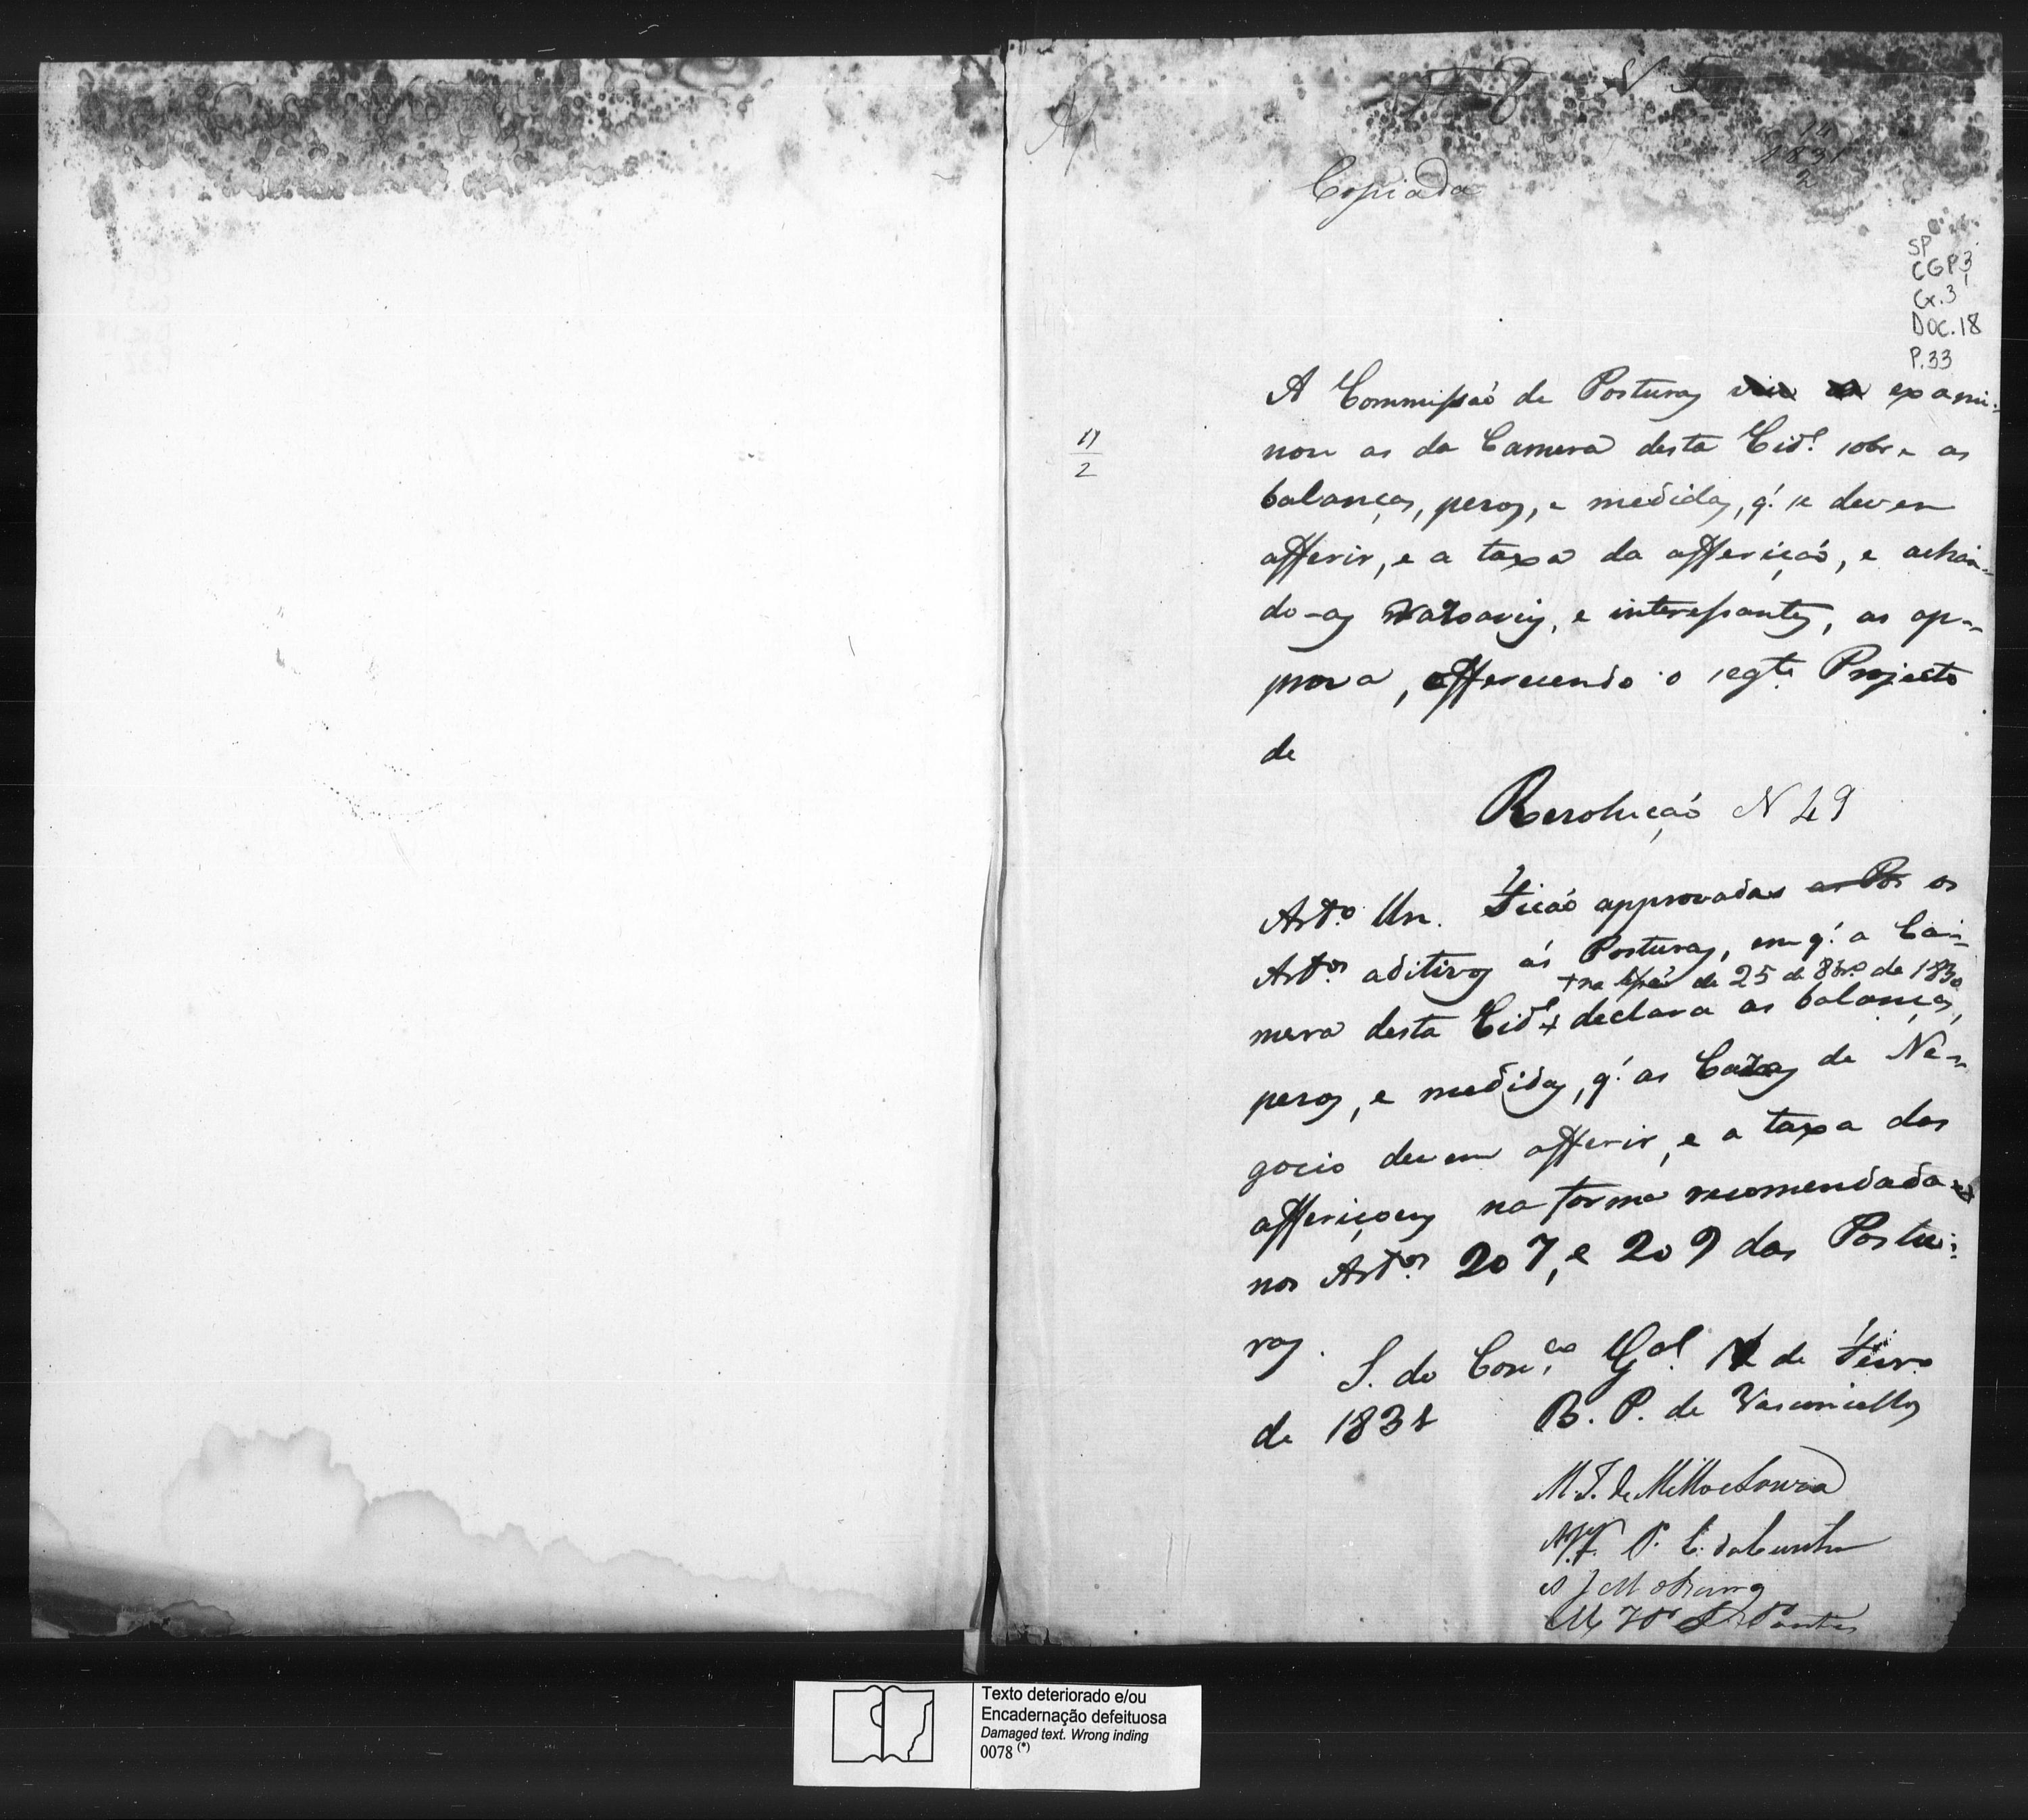 N 5
14
1831
2
Copiada
SP
CGP3,
Cx.3
Doc.18
P.33
11
2
A Commissaõ de Posturas exami-
nou as da Camera desta Cid.e sobre as
balanças, pesos, e medidas, q.' se devem
afferir, e a taxa da affericaõ, e achan-
do-as razoaveis, e interessantes, as ap-
prova, offerecendo o segte Projecto
de
Resoluçaõ N 49
Arto. Un. Ficaõ approvadas as Pos os
Artos. aditivos ás Posturas, em q.' a Ca-
+ na Sessaõ de 25 de 8bro de 1830
mera desta Cid.e + declara as balanças,
pesos, e medidas, q.' as Cazas de Ne-
gocio devem afferir, e a taxa das
affericoens na forma recomendada
nos Artos. 207, e 209 das Postu-
ras.
S. do Cons.o G.al 12 de Fevro
de 1831
B. P. de Vasconcellos
M. I. de Mello e Souza
P. C. da Cunha
J M
M J P Pontes
Texto deteriorado e/ou
Encadernação defeituosa
Damaged text. Wrong inding
0078 (*)